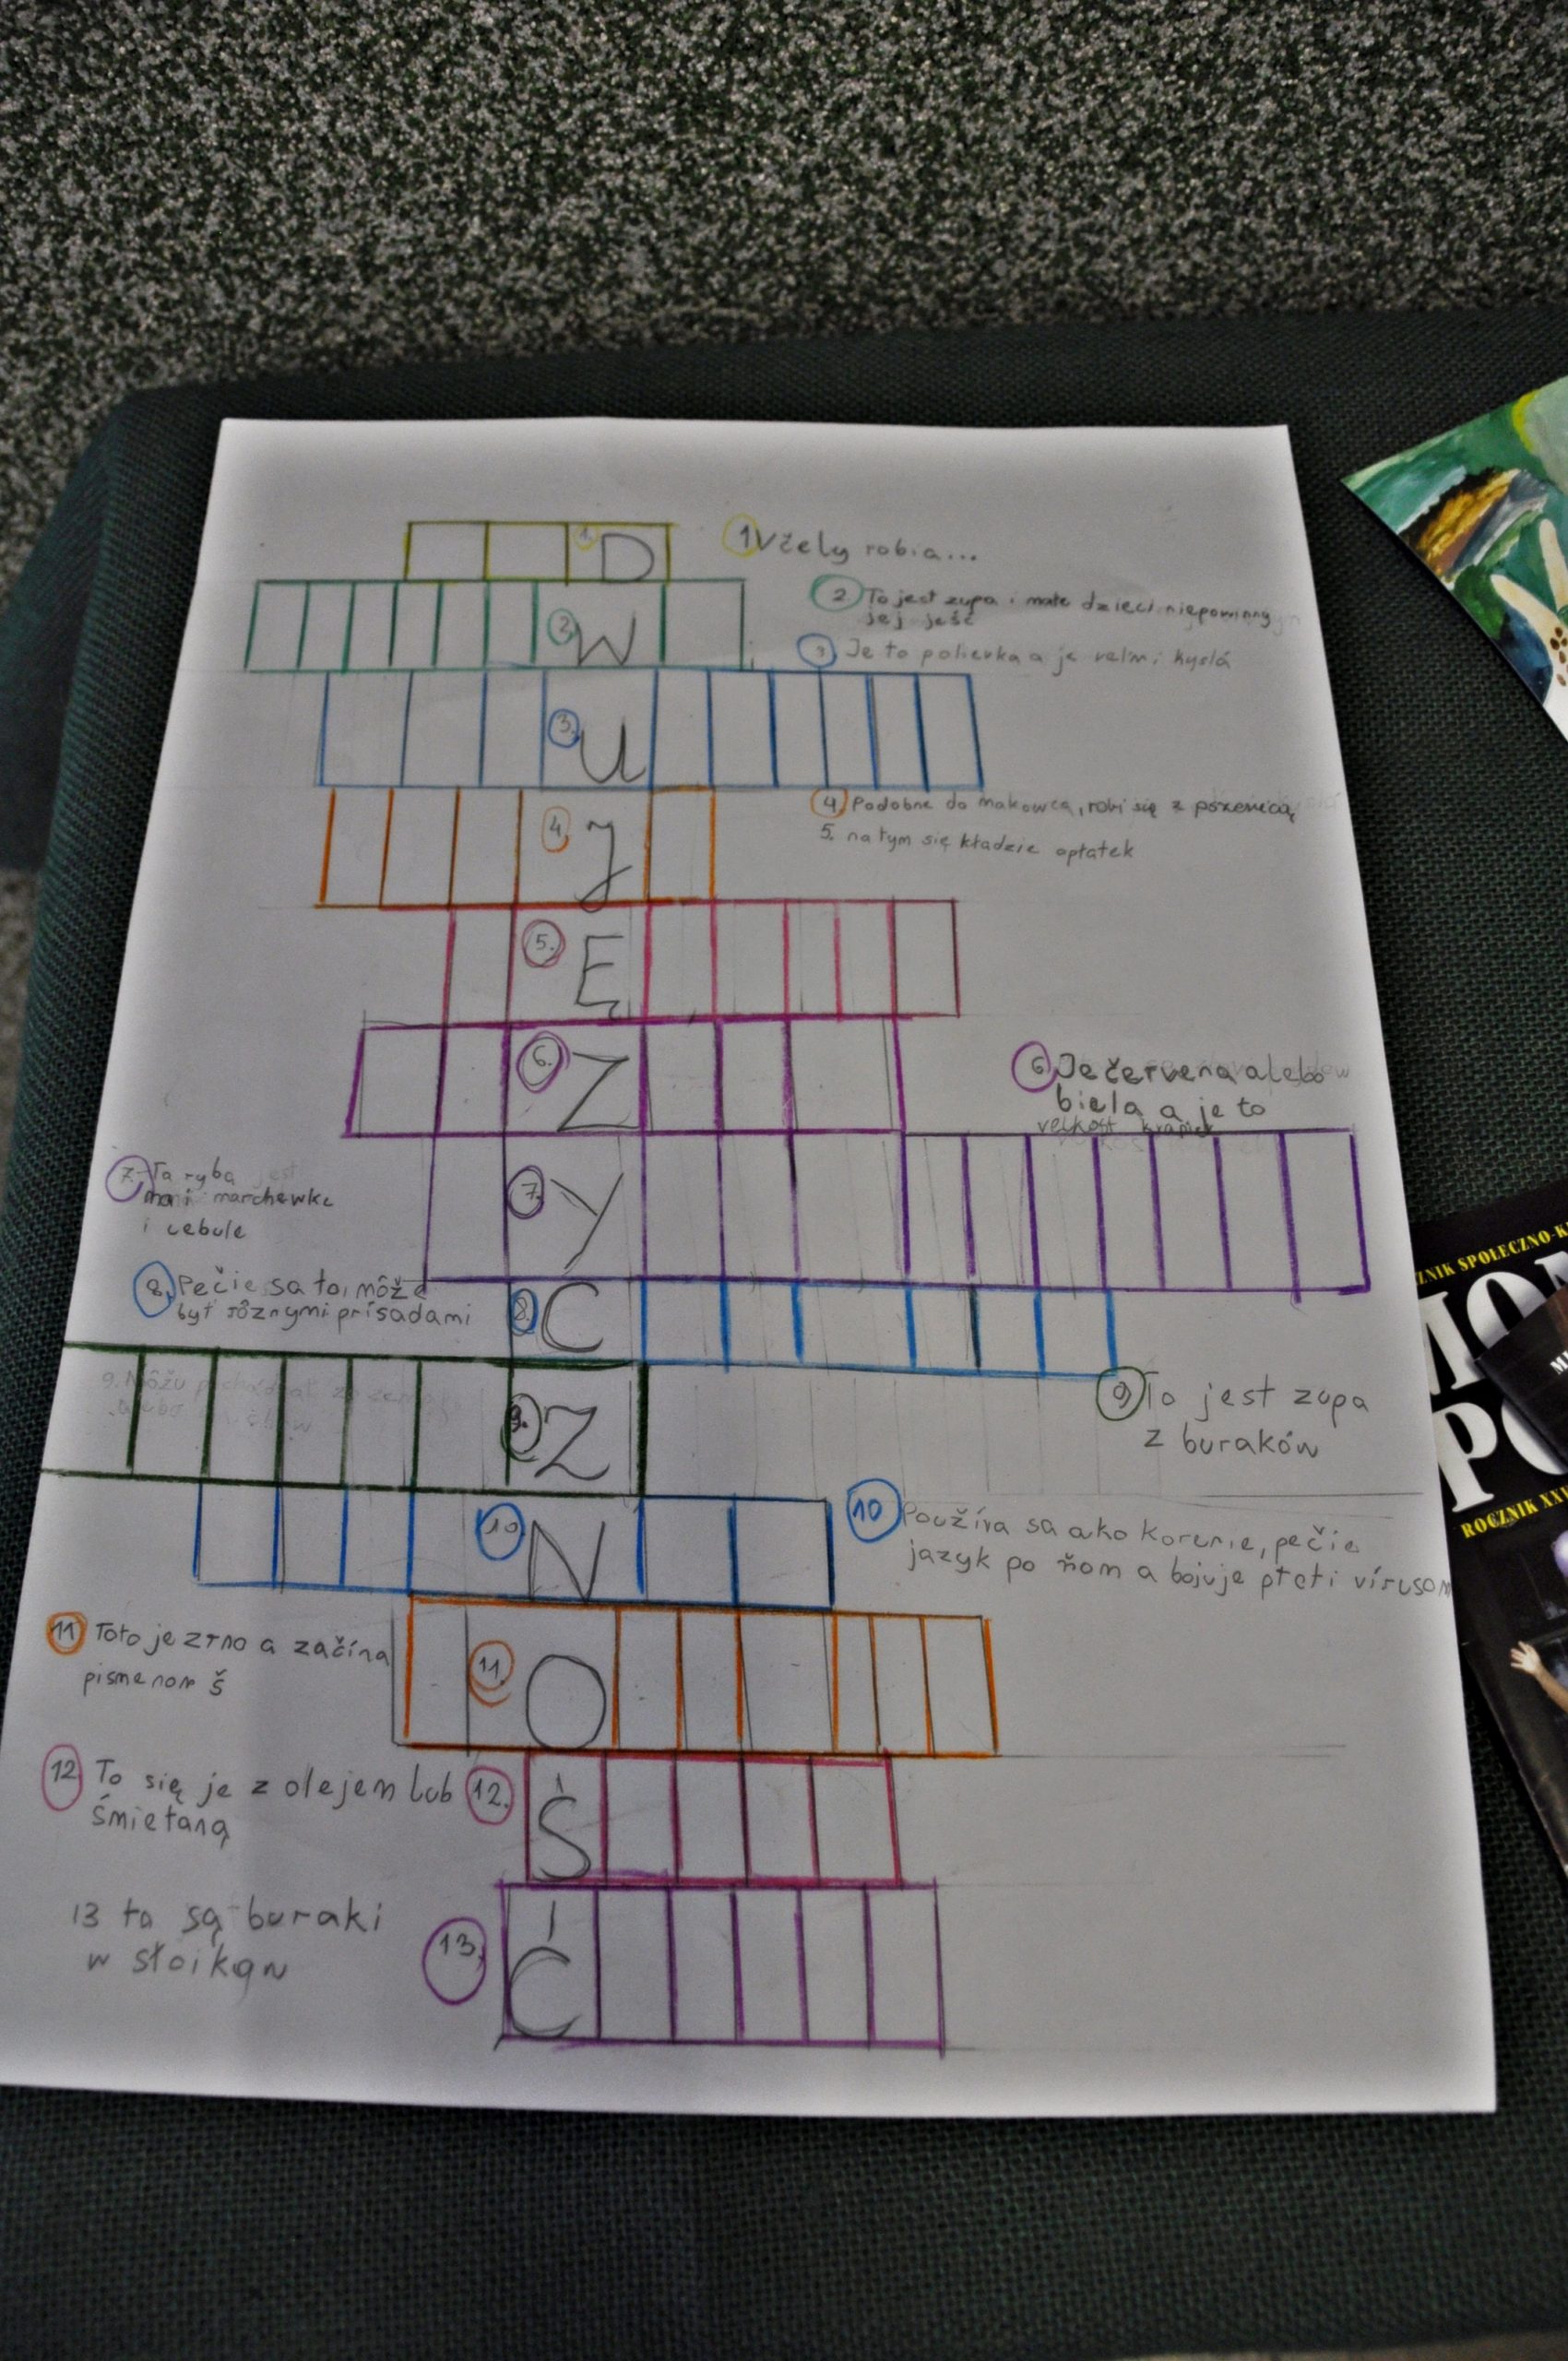 1. D
1 Včely robia...
2. W
2 To jest zupa i małe dzieci niepowinny
jej jeść
3 Je to polievka a je velmi kyslá
3. U
4. J
4 Podobne do makowca, robi się z pszenicą
5. na tym się kładzie opłatek
5. Ę
6. Z
6 Je červena alebo
biela a je to
velkost
7. Ta ryba
ma i marchewke
i cebule
7. Y
8. Pečie sa to, môže
byť rôznymi prísadami
8. C
9. Z
9 To jest zupa
z buraków
10. N
10 Používa sa ako korenie, pečie
jazyk po ňom a bojuje ptoti vírusom
11 Toto je zrno a začína
pismenom š
11. O
12 To się je z olejem lub
śmietaną
12. Ś
13 to są buraki
w słoikąw
13. Ć
ROCZNIK XXV